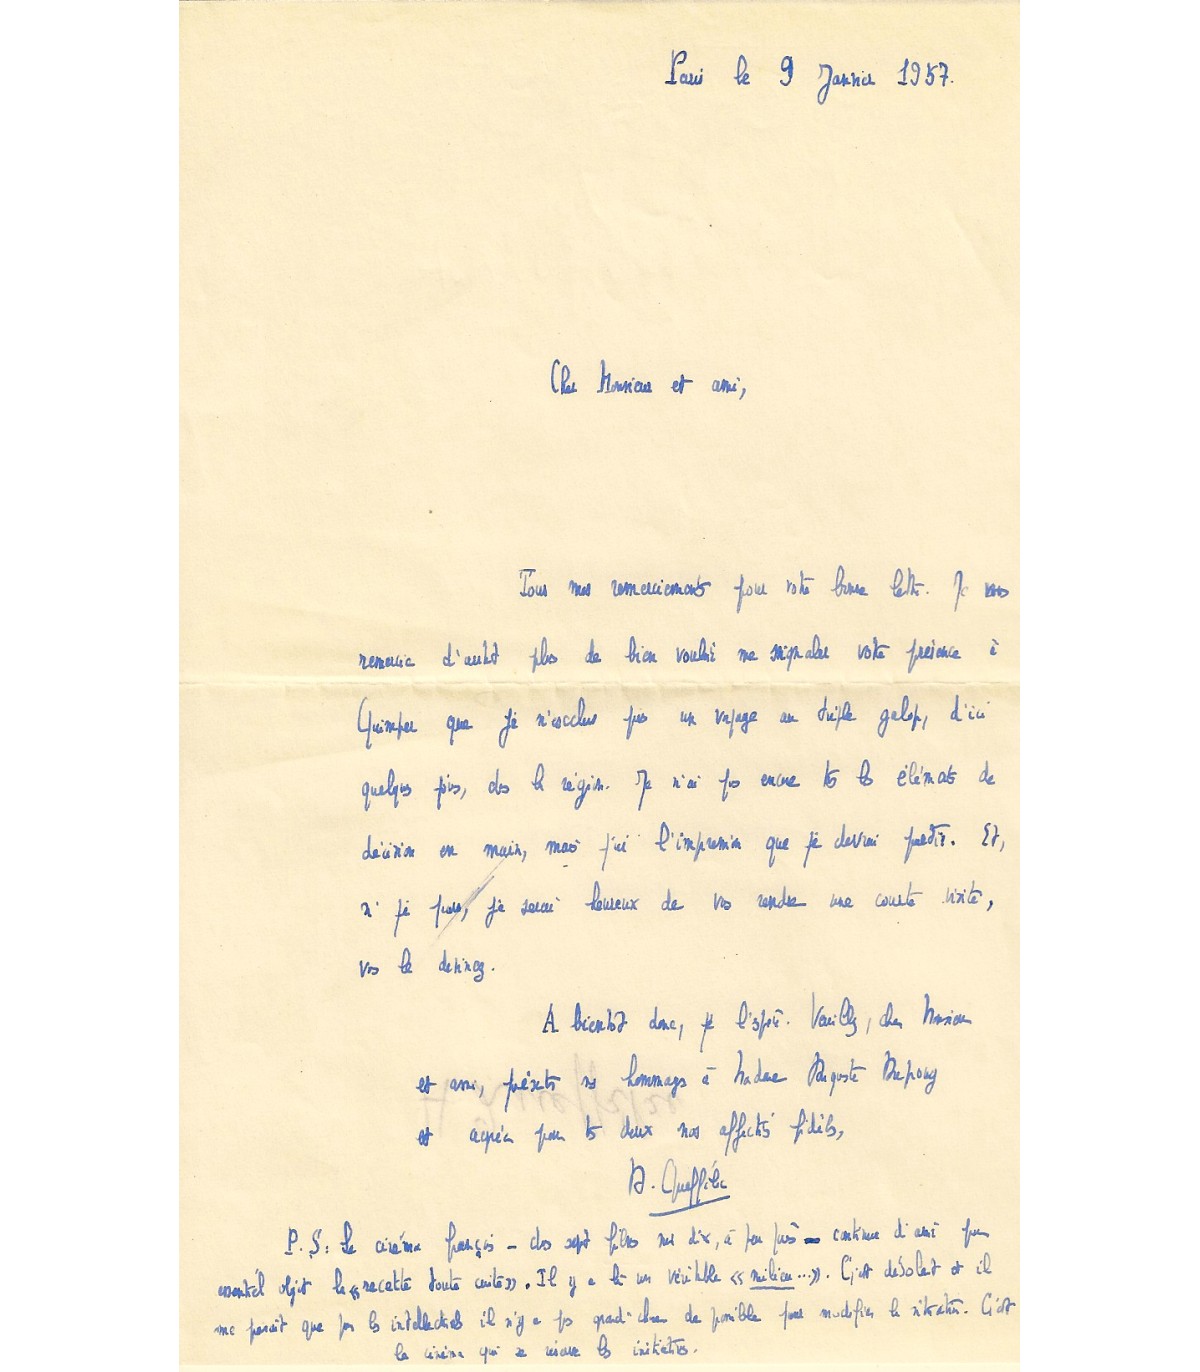 Paris le 9 Janvier 1957.
Cher Monsieur et ami,
Tous mes remerciements pour votre bonne lettre. Je vous
remercie d'autant plus de bien vouloir me signaler votre présence à
Quimper que je n'exclus pas un voyage au triple galop, d'ici
quelques jours, dans la région. Je n'ai pas encore tous les éléments de
décision en main, mais j'ai l'impression que je devrai partir. Et,
si je pars, je serai heureux de vous rendre une courte visite,
vous le devinez.
A bientôt donc, je l'espère. Veuillez, cher Monsieur
et ami, présenter nos hommages à Madame Auguste Dupouy
et agréer pour tous deux nos affectés fidèles,
H. Queffélec
P.S: Le cinéma français - dans sept films sur dix, à peu près - continue d'avoir pour
essentiel objet la «recette toute cuite». Il y a là un véritable «milieu...». C'est désolant et il
me paraît que pour les intellectuels il n'y a pas grand'chose de possible pour modifier la situation. C'est
le cinéma qui se réserve les initiatives.